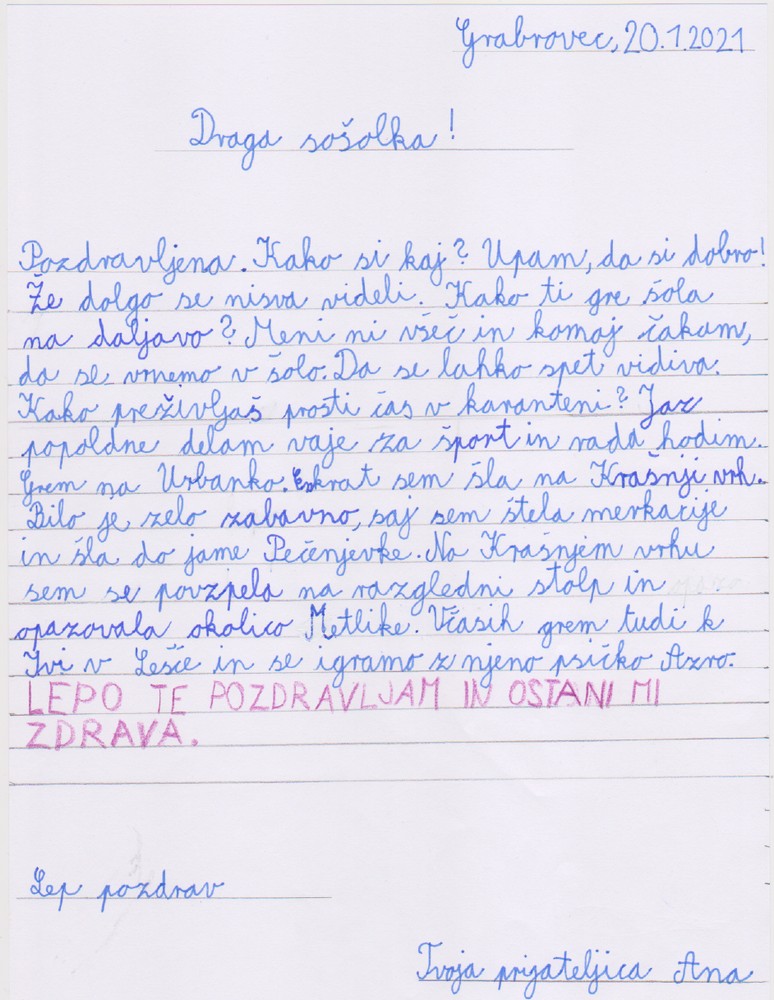 Grabrovec, 20.1.2021
Draga sošolka!
Pozdravljena. Kako si kaj? Upam, da si dobro!
Že dolgo se nisva videli. Kako ti gre šola
na daljavo? Meni ni všeč in komaj čakam,
da se vrnemo v šolo. Da se lahko spet vidiva.
Kako preživljaš prosti čas v karanteni? Jaz
popoldne delam vaje za šport in rada hodim.
Grem na Urbanko. Enkrat sem šla na Krašnji vrh.
Bilo je zelo zabavno, saj sem štela merkacije
in šla do jame Pečenjevke. Na Krašnjem vrhu
sem se povzpela na razgledni stolp in
opazovala okolico Metlike. Včasih grem tudi k
Ivi v Lešče in se igramo z njeno psičko Azro.
LEPO TE POZDRAVLJAM IN OSTANI MI
ZDRAVA.
Lep pozdrav
Tvoja prijateljica Ana